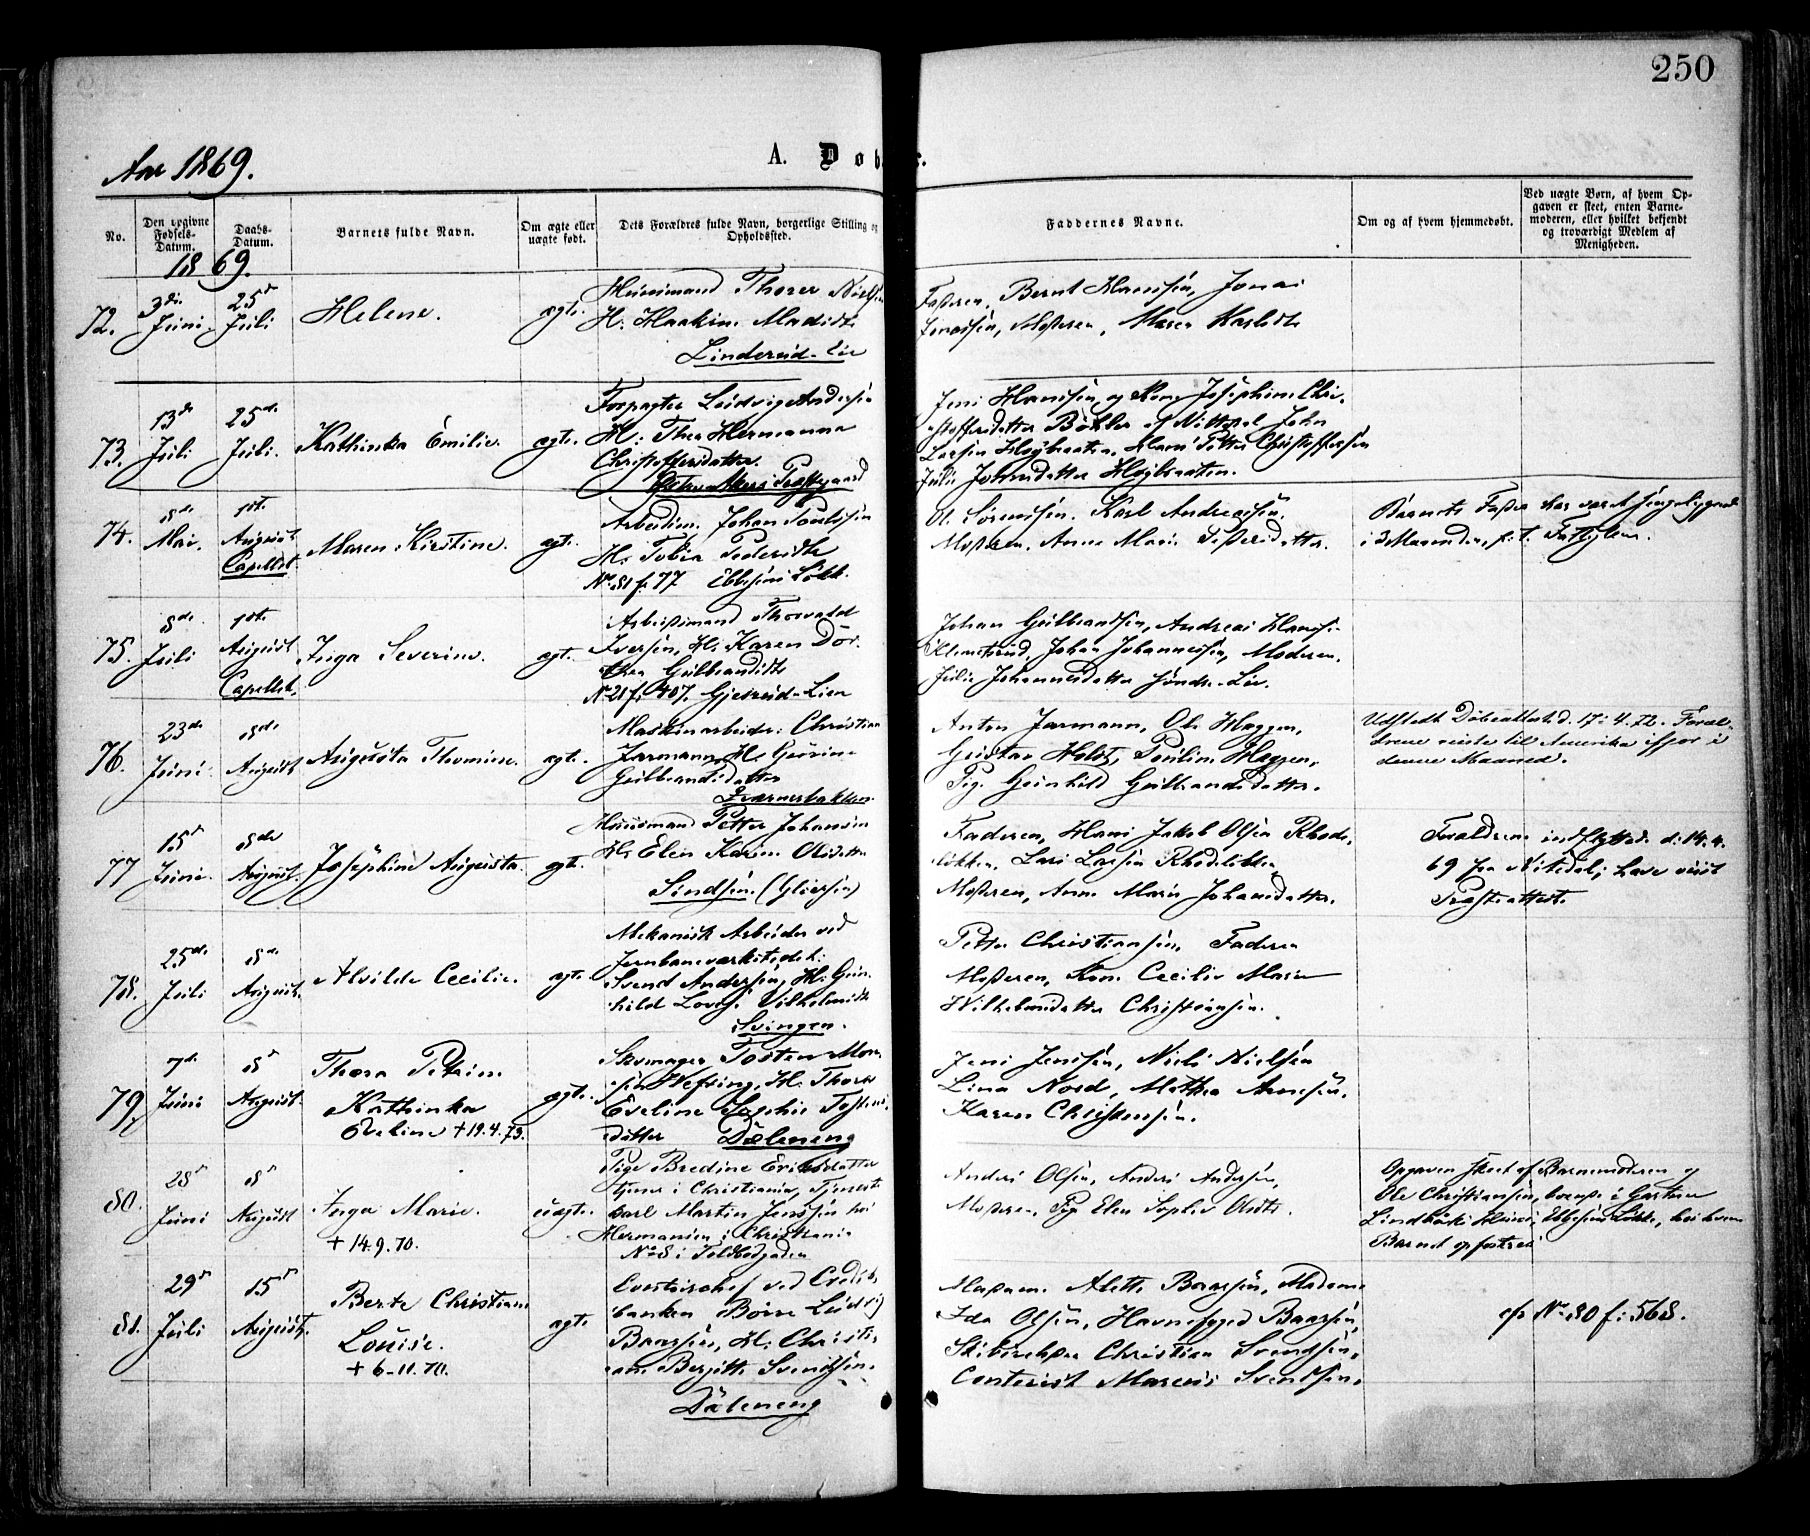 250
Aar 1869.
A. Døb
No.
Den opgivne Fødsels-Datum.
Daabs-Datum.
Barnets fulde Navn.
Om ægte eller uægte født.
Dets Forældres fulde Navn, borgerlige Stilling og Opholdssted.
Faddernes Navne.
Om og af hvem hjemmedøbt.
Ved uægte Børn, af hvem Opgaven er skeet, enten Barnemoderen, eller hvilket bekjendt og troværdigt Medlem af Menigheden.
1869.
72.
3die Juni
25d Juli
Helene.
ægte.
Huusmand Thorer Nielsen
H: Haakin Madsdt
Linderud-Eie
Faderen, Bernt Hansen, Jonas
Jonassen, Moderen, Maren Karlsdt
73.
13de Juli
25de Juli.
Kathinka Emilie.
ægte.
Forpagter Ludvig Andersen
H: Thea Hermanna
Christoffersdatter.
Østre Akers Præstgaard
Jens Hansen og Kone Josephine Chri-
stoffersdatter Bøhler af Nittedal John
Larsen Høybraaten, Hans Petter Christoffersen
Julie Johnsdatter Høybraaten.
74.
8de Mai.
1ste August Capellet
Maren Kirstine.
ægte.
Arbeidsm. Johan Poulsen
H: Tobia Pedersdt
No 81 f. 77 Ebbesens Løkk.
O. Sørensen. Karl Andreasen.
Moderen. Anne Marie Pedersdatter.
Barnets Fader har været sengeliggende
i 3 Maaneder, p: t: Fattiglem.
75.
8de Juli
1ste August Capellet.
Inga Severine.
ægte.
Arbeidsmand Thorvald
Iversen, H: Karen Dor-
thea Gulbrandsdt
No 21 f. 407. Gjetsrud-Eien
Johan Gulbrandsen, Andreas Hansen
Klemetsrud, Johan Johannessen, Moderen.
Julie Johannesdatter Søndre-Eie.
76.
23de Juni
8de August
Augusta Thomine.
ægte.
Maskinarbeider Christian
Jarmann, H: Gurine
Gulbrandsdatter
Kværnerbakken.
Anton Jarmann, Ole Haggen,
Gustav Holst, Pauline Haggen,
Pige Gunhild Gulbrandsdatter.
Udstedt Døbeattest d. 17: 4. 72. Foræl-
drene reiste til Amerika ifjor i
denne Maaned.
77
15d Juni
8de August.
Josephine Augusta.
ægte.
Huusmand Petter Johansen
H: Elen Karine Olsdatter
Sindsen. (Gliersen)
Faderen, Hans Jakob Olsen Rhode-
løkken, Lars Larsen Rhodeløkken
Moderen, Anne Marie Johansdatter.
Forældrene indflyttede d: 14. 4.
69 fra Nitedal; have viist
Præsteattest.
78.
25de Juli
8de August.
Alvilde Cecilie.
ægte.
Mekanisk Arbeider ved
Jernbaneværkstedet:
Svend Andersen, H: Gun-
hild Lovise Vilhelmsdt
Svingen.
Petter Christiansen, Faderen
Moderen, Kone Cecilie Marie
Wilhelmsdatter Christiansen.
79.
7de Juni
8d August.
Thora Petrine
Kathinka
Eveline + 19. 4. 73.
ægte.
Skomager Tosten Mon-
sen Hefring, H: Thora
Eveline Sophie Tostens-
datter Dæleneng
Jens Jensen, Niels Nielsen
Lina Nord, Mathea Arnesen,
Karen Christensen.
80.
28d Juni
8d August
Inga Marie.
+ 14. 9. 70.
uægte.
Pige Bredine Eriksdatter
tjener i Christiania, Tjeneste-
karl Martin Jenssen hos
Hermansen i Christiania
No 8 i Toldbodgaden
Anders Olsen, Anders Andersen,
Moderen, Pige Elen Sophie Olsdt.
Opgaven skeet af Barnemoderen og
Ole Christiansen, boende i Gartner
Lindbäks Huus, Ebbesens Løkke, hos hvem
Barnet opfostres
81.
29d Juli
15d August.
Berte Christiane
Louise.
+ 6-11. 70.
ægte.
Contorchef ved Credit-
banken Børre Ludvig
Baarsen, H: Christi-
ane Bergitte Svendsen.
Dæleneng
Madam Alette Baarsen, Madame
Ida Olsen, Havnefoged Baarsen,
Skibsreder Christian Svendsen,
Contorist Marcus Svendsen.
cfr No 80 f: 568.